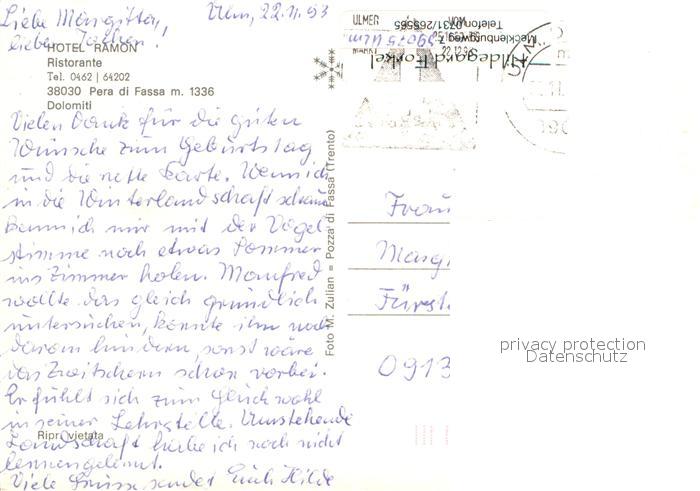 Ulm, 22.11.93
Liebe Margitta,
lieber Jochen!
HOTEL RAMON
Ristorante
Tel. 0462 | 64202
38030 Pera di Fassa m. 1336
Dolomiti
Vielen Dank für die guten
Wünsche zum Geburtstag
und die nette Karte. Wenn ich
in die Winterlandschaft schaue
kann ich mir mit der Vogel
stimme noch etwas Sommer
ins Zimmer holen. Manfred
wollte das gleich gründlich
untersuchen, konnte ihn noch
daran hindern, sonst wäre
das Zwitschern schon vorbei.
Er fühlt sich zum Glück wohl
in seiner Lehrstelle. Umstehende
Landschaft habe ich noch nicht
kennengelernt.
Viele Grüsse sendet Euch Hilde
Ripr. vietata
Foto M. Zulian = Pozza di Fassa (Trento)
Hildegard Forkel
Mecklenburgweg 7
89075 Ulm
Telefon 0731/265565
ULMER
VOM
MARKT
22.12.93
Frau
Marg.
Fürst.
0913
privacy protection
Datenschutz